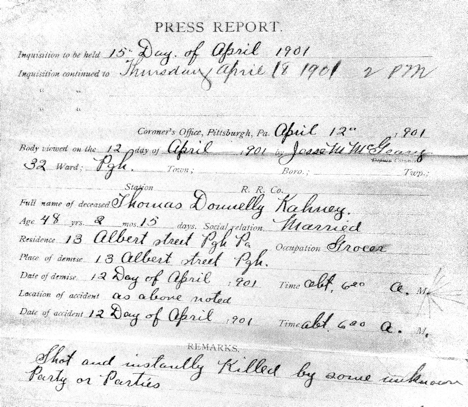 PRESS REPORT.
Inquisition to be held 15" Day. of April 1901
Inquisition continued to Thursday April 18 1901 2 PM
" "
" "
Coroner's Office, Pittsburgh, Pa. April 12" 1901
Body viewed on the 12 day of April 1901 by Jesse M McGeary
32 Ward; Pgh. Town; Boro.; Twp;
Station R. R. Co.
Full name of deceased Thomas Donnelly Kahney.
Age 48 yrs. 2 mos. 15 days. Social relation, Married
Residence 13 Albert street Pgh Pa Occupation Grocer
Place of demise, 13 Albert street Pgh.
Date of demise, 12 Day of April 1901 Time abt. 6 00 a. M.
Location of accident as above noted
Date of accident 12 Day of April, 1901 Time abt. 6 00 a. M.
REMARKS.
Shot and instantly Killed by some unknown
Party or Parties